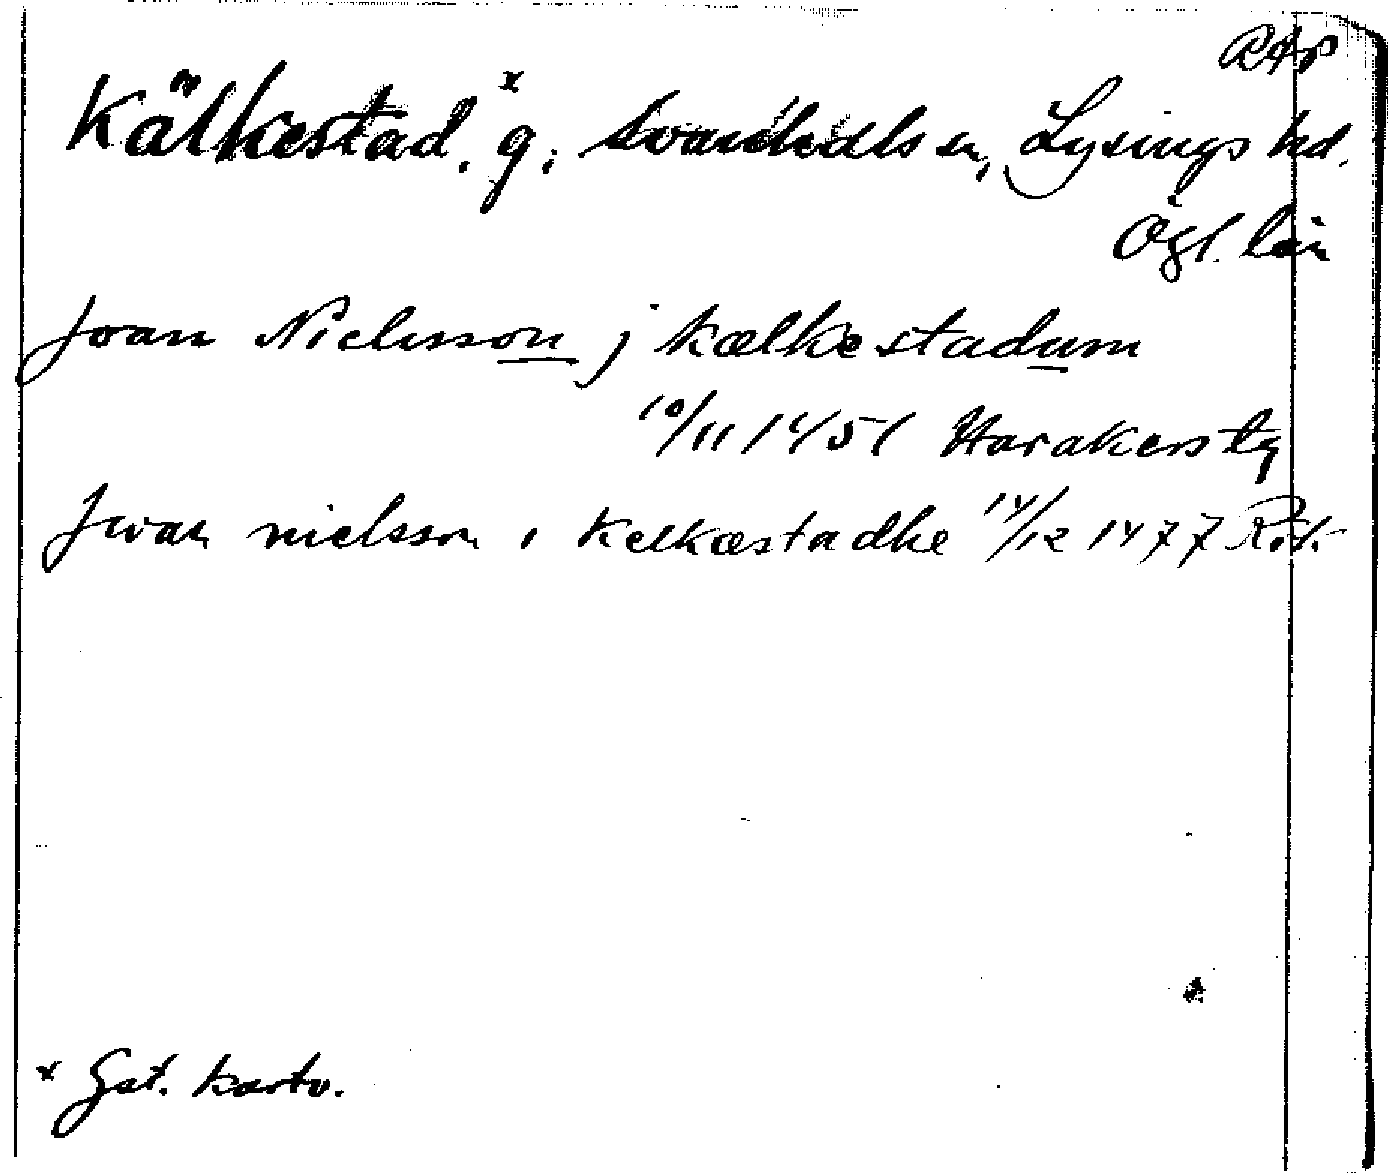 RAp
Kälkestad. x g. Svanhals sn, Lysings hd.
Ögl. län
Joan Nielsson j kælkestadum
10/11 1451 Harakers tg
Jwan nielsson i kelkæstadhe 14/12 1477 Rök
x Gst. kartv.